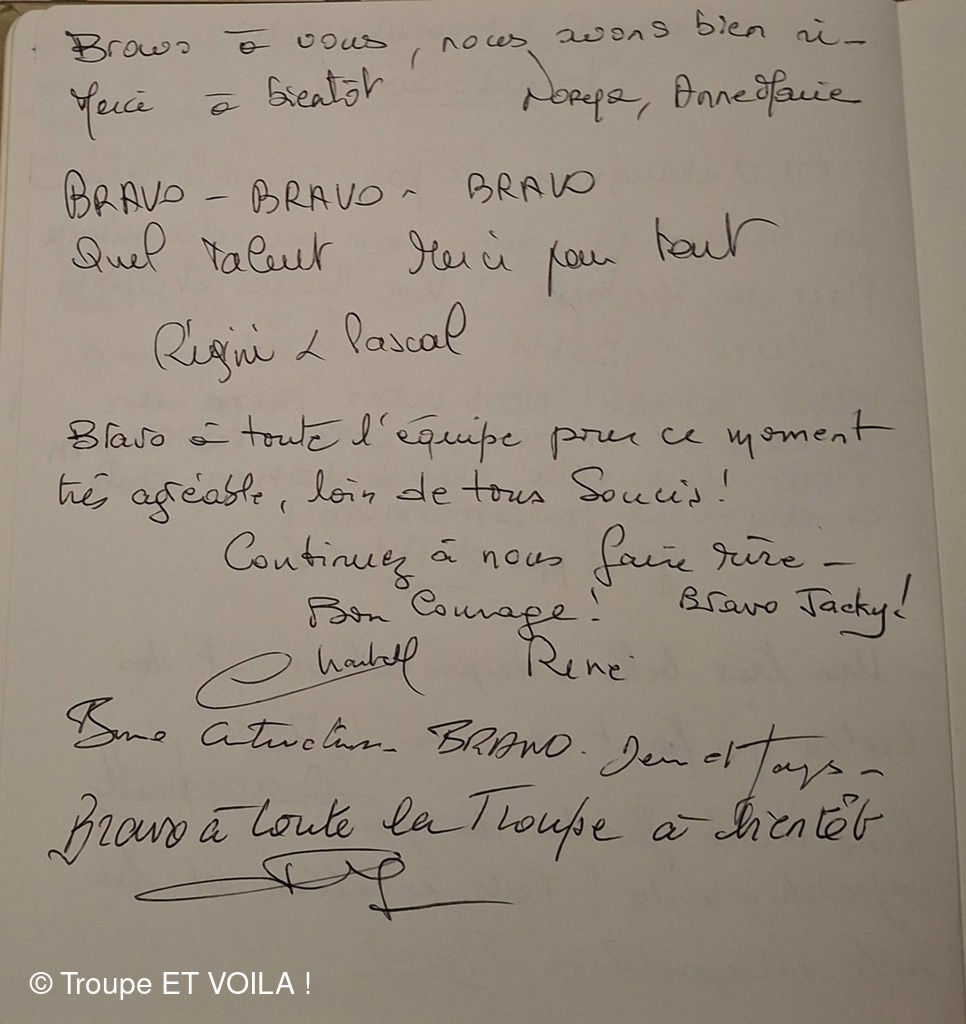 Bravo à vous, nous avons bien ri -
Merci à bientôt Anne Marie
BRAVO - BRAVO - BRAVO
Quel talent Merci pour tout
& Pascal
Bravo à toute l'équipe pour ce moment
très agréable, loin de tous Soucis !
Continuez à nous faire rire -
Bon Courage ! Bravo Jacky !
René
BRAVO.
Bravo à toute la Troupe à bientôt
© Troupe ET VOILA !